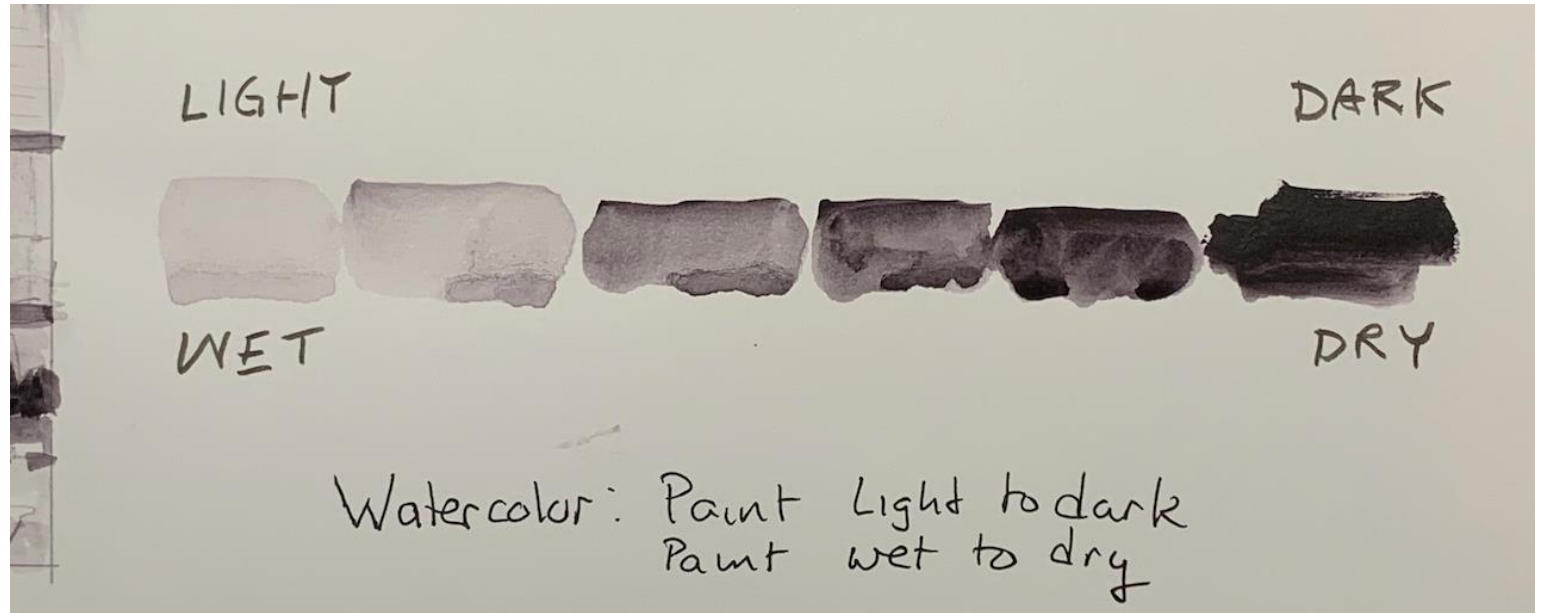 LIGHT DARK
WET DRY
Watercolor: Paint Light to dark
Paint wet to dry